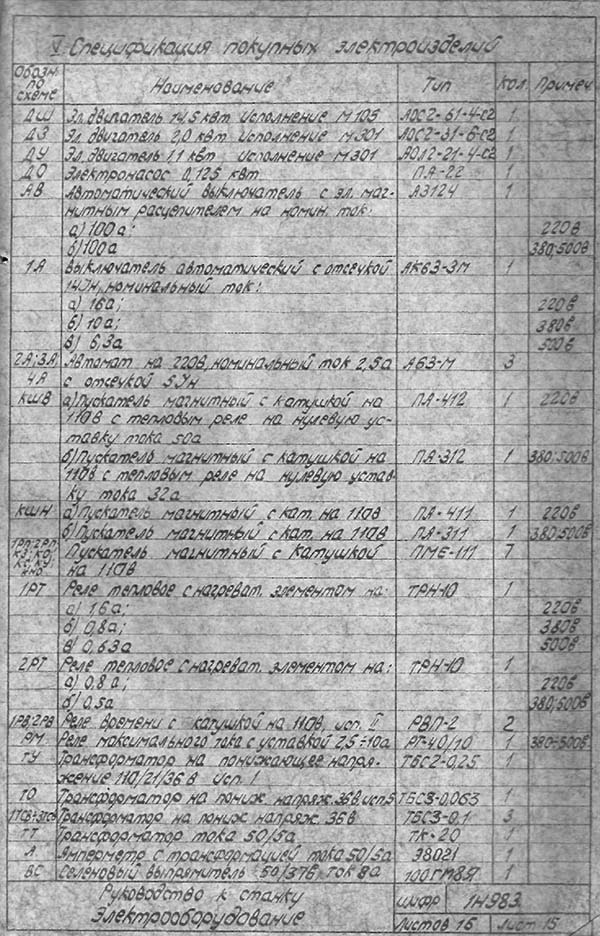 V. Спецификация покупных электроизделий
Обозн. по схеме Наименование Тип Кол. Примеч
ДШ Эл. двигатель 14,5 квт исполнение М105 АОС2-61-4-С2 1
ДЗ Эл. двигатель 2,0 квт исполнение М301 АОС2-31-6-С2 1
ДУ Эл. двигатель 1,1 квт исполнение М301 АОЛ2-21-4-С2 1
ДО Электронасос 0,125 квт ПА-22 1
АВ Автоматический выключатель с эл. маг- А3124 1
нитным расцепителем на номин. ток:
а) 100а; 220в
б) 100а 380;500в
1А Выключатель автоматический с отсечкой АК63-3М 1
14Iн, номинальный ток:
а) 16а; 220в
б) 10а; 380в
в) 6,3а 500в
2А;3А Автомат на 220в, номинальный ток 2,5а А63-М 3
4А с отсечкой 5Iн
КШВ а) Пускатель магнитный с катушкой на ПА-412 1 220в
110в с тепловым реле на нулевую ус-
тавку тока 50а
б) Пускатель магнитный с катушкой на ПА-312 1 380;500в
110в с тепловым реле на нулевую устав-
ку тока 32а
КШН а) Пускатель магнитный с кат. на 110в ПА-411 1 220в
б) Пускатель магнитный с кат. на 110в ПА-311 1 380;500в
1РП;2РП Пускатель магнитный с катушкой ПМЕ-111 7
КЗ;КО;
на 110в
1РТ Реле тепловое с нагреват. элементом на: ТРН-10 1
а) 1,6а; 220в
б) 0,8а; 380в
в) 0,63а 500в
2РТ Реле тепловое с нагреват. элементом на: ТРН-10 1
а) 0,8а; 220в
б) 0,5а 380;500в
1РВ;2РВ Реле времени с катушкой на 110в, исп. II РВП-2 2
РМ Реле максимального тока с уставкой 2,5÷10а РТ-40/10 1 380-500в
ТУ Трансформатор на понижающее напря- ТБС2-0,25 1
жение 110/21/36в исп. 1
ТО Трансформатор на пониж. напряж. 36в. исп5 ТБС3-0,063 1
1ТСВ÷3ТСВ Трансформатор на пониж напряж. 36в ТБС3-0,1 3
ТТ Трансформатор тока 50/5а ТК-20 1
А Амперметр с трансформацией тока 50/5а Э8021 1
ВС Селеновый выпрямитель 50/37в ток 8а 100ГМ8Я 1
Руководство к станку шифр 1Н983
Электрооборудование Листов 16 Лист 15